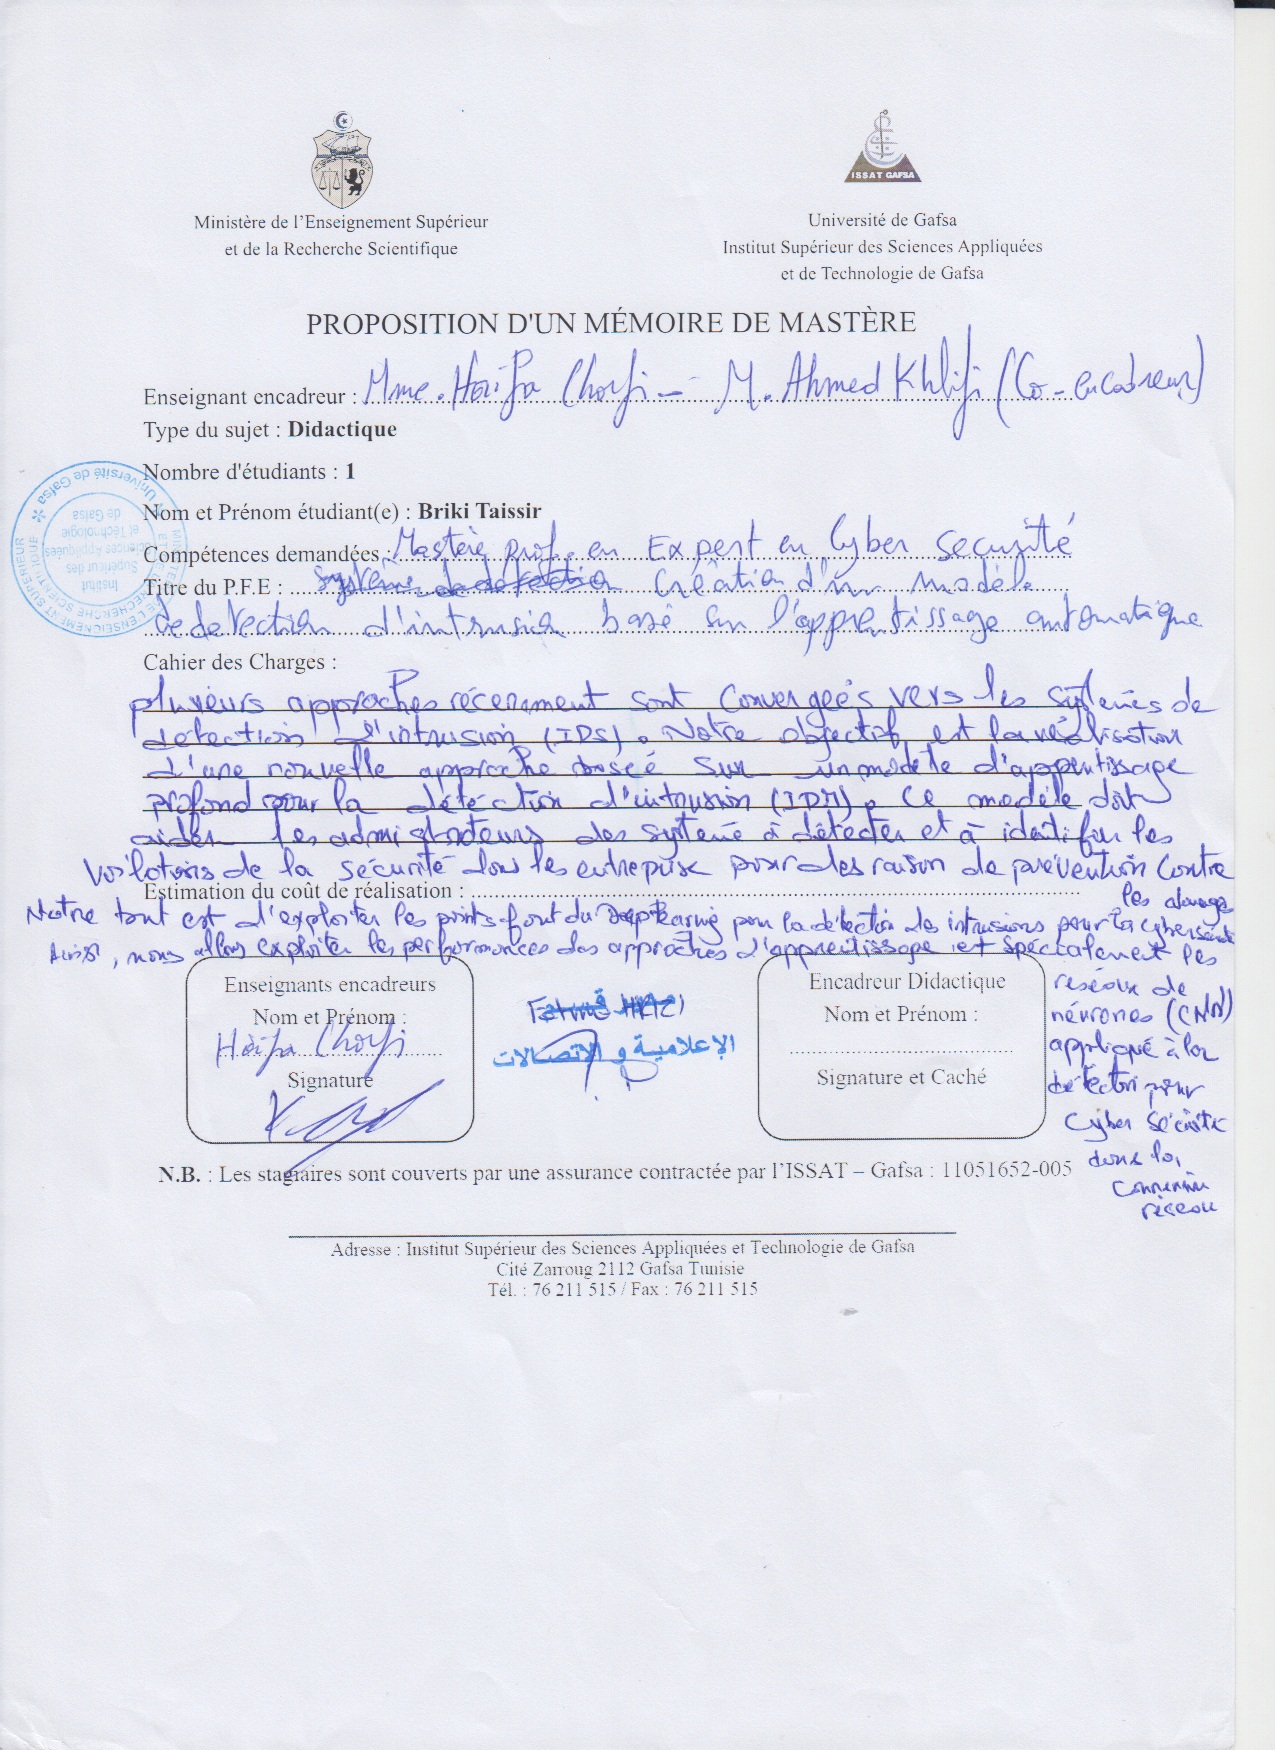 Ministère de l'Enseignement Supérieur
et de la Recherche Scientifique
ISSAT GAFSA
Université de Gafsa
Institut Supérieur des Sciences Appliquées
et de Technologie de Gafsa
PROPOSITION D'UN MÉMOIRE DE MASTÈRE
Enseignant encadreur : Mme. Haifa Chorfi - M. Ahmed Khlifi (Co-encadreur)
Type du sujet : Didactique
Nombre d'étudiants : 1
Nom et Prénom étudiant(e) : Briki Taissir
Compétences demandées : Mastère prof. en Expert en Cyber Securité
Titre du P.F.E : Système de detection Création d'un modèle
de detection d'intrusion basé sur l'apprentissage automatique
Cahier des Charges :
plusieurs approches récemment sont Convergeés vers les systèmes de
détection d'intrusion (IDS). Notre objectif est la réalisation
d'une nouvelle approche baseé sur un modèle d'apprentissage
profond pour la détéction d'intrusion (IDM). Ce modèle doit
aider les administrateurs des système à détecter et à identifier les
de la sécurité dans les entreprise pour des raison de prévention Contre
les
Estimation du coût de réalisation :
Notre est d'exploiter les points du pour la détection des intrusions pour la
Ainsi, nous allons exploiter les performances des approches d'apprentissage et spécialement les
réseaux de
neurones (CNN)
appliqué à la
détection pour
Cyber sécurité
dans la
réseau
Enseignants encadreurs
Nom et Prénom :
Haifa Chorfi
Signature
الإعلامية و الاتصالات
Encadreur Didactique
Nom et Prénom :
Signature et Caché
N.B. : Les stagiaires sont couverts par une assurance contractée par l'ISSAT – Gafsa : 11051652-005
Adresse : Institut Supérieur des Sciences Appliquées et Technologie de Gafsa
Cité Zarroug 2112 Gafsa Tunisie
Tél. : 76 211 515 / Fax : 76 211 515
Université de Gafsa
Institut
Supérieur des
Sciences Appliquées
et Technologie
de Gafsa